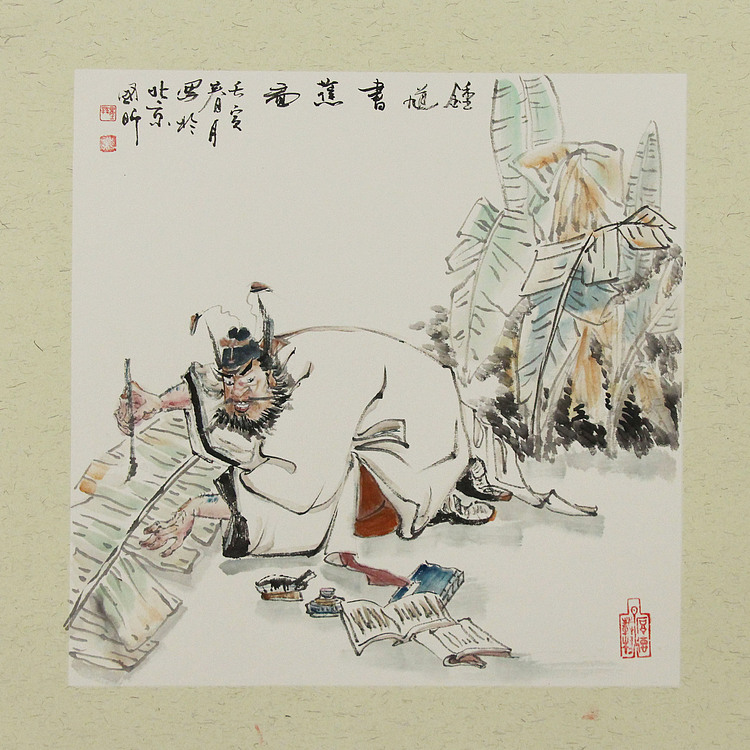 鍾馗書蕉圖
壬寅
春月
写於
北京
國昕